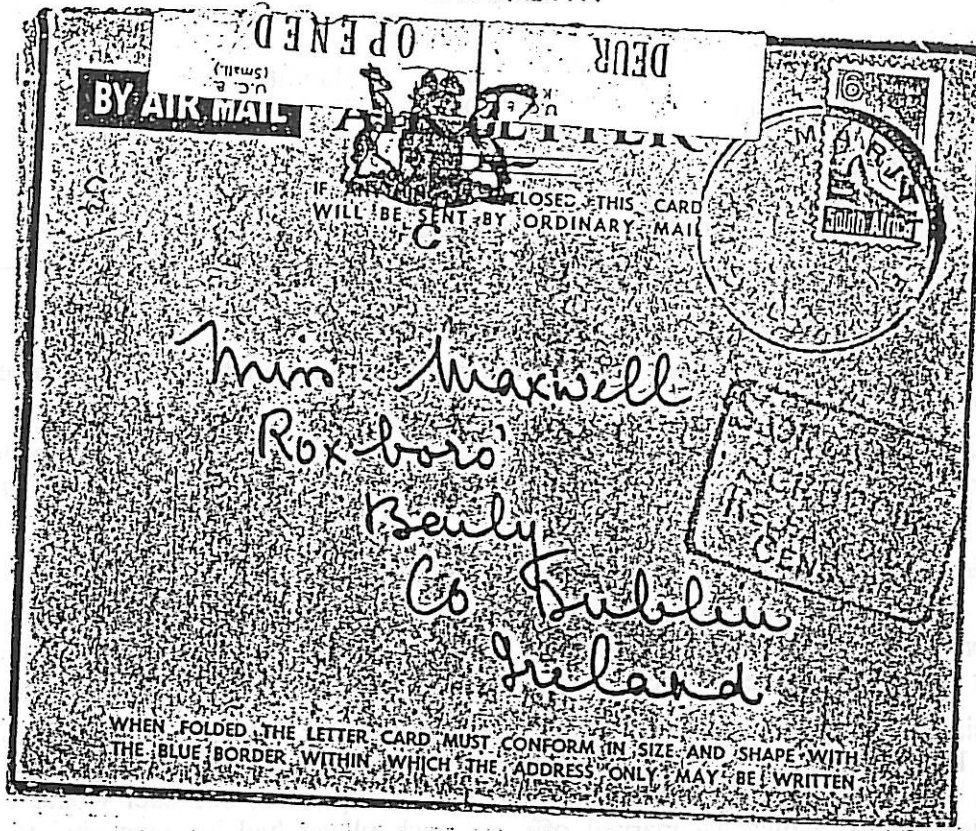 OPENED
DEUR
U.C. 6.
(Small.)
BY AIR MAIL
AIR LETTER
6
South Africa
IF ANYTHING IS ENCLOSED THIS CARD
WILL BE SENT BY ORDINARY MAIL
C
Miss Maxwell
Roxboro'
Baily
Co Dublin
Ireland
WHEN FOLDED THE LETTER CARD MUST CONFORM IN SIZE AND SHAPE WITH
THE BLUE BORDER WITHIN WHICH THE ADDRESS ONLY MAY BE WRITTEN